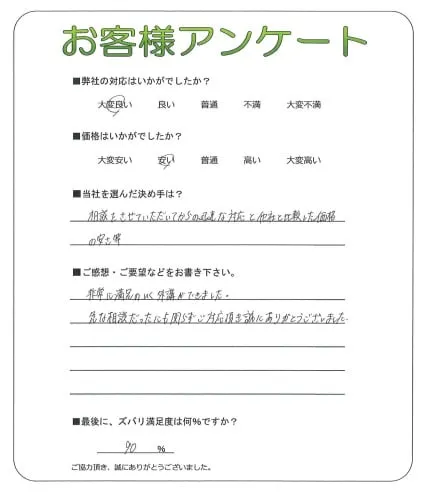 お客様アンケート
■弊社の対応はいかがでしたか？
大変良い 良い 普通 不満 大変不満
■価格はいかがでしたか？
大変安い 安い 普通 高い 大変高い
■当社を選んだ決め手は？
相談をさせていただいてからの迅速な対応と他社と比較した価格
の安さ等
■ご感想・ご要望などをお書き下さい。
非常に満足のいく ができました。
急な相談だったにも関らずご対応頂き誠にありがとうございました。
■最後に、ズバリ満足度は何％ですか？
90 ％
ご協力頂き、誠にありがとうございました。